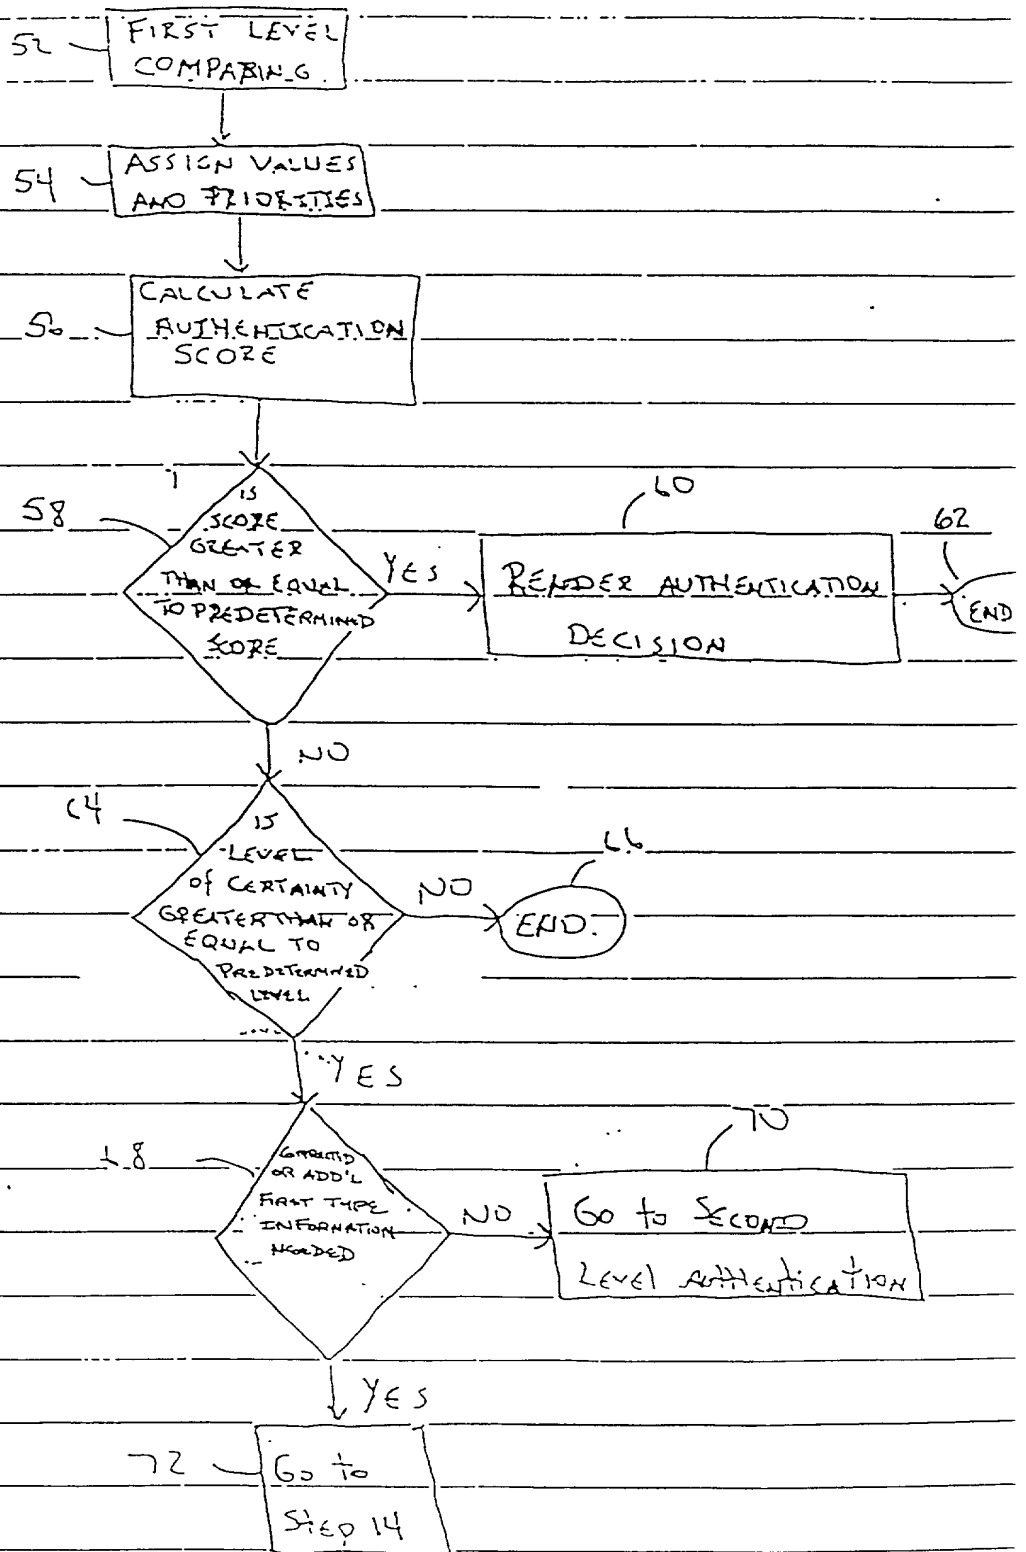 52
FIRST LEVEL
COMPARING.
54
ASSIGN VALUES
AND PRIORITIES
CALCULATE
AUTHENTICATION
SCORE
58
IS
SCORE
GREATER
THAN OR EQUAL
TO PREDETERMINED
SCORE
YES
60
RENDER AUTHENTICATION
DECISION
62
END
NO
64
IS
LEVEL
OF CERTAINTY
GREATER THAN OR
EQUAL TO
PREDETERMINED
LEVEL
NO
66
END.
YES
68
OR ADD'L
FIRST TYPE
INFORMATION
NEEDED
NO
70
Go to SECOND
LEVEL AUTHENTICATION
YES
72
Go to
Step 14